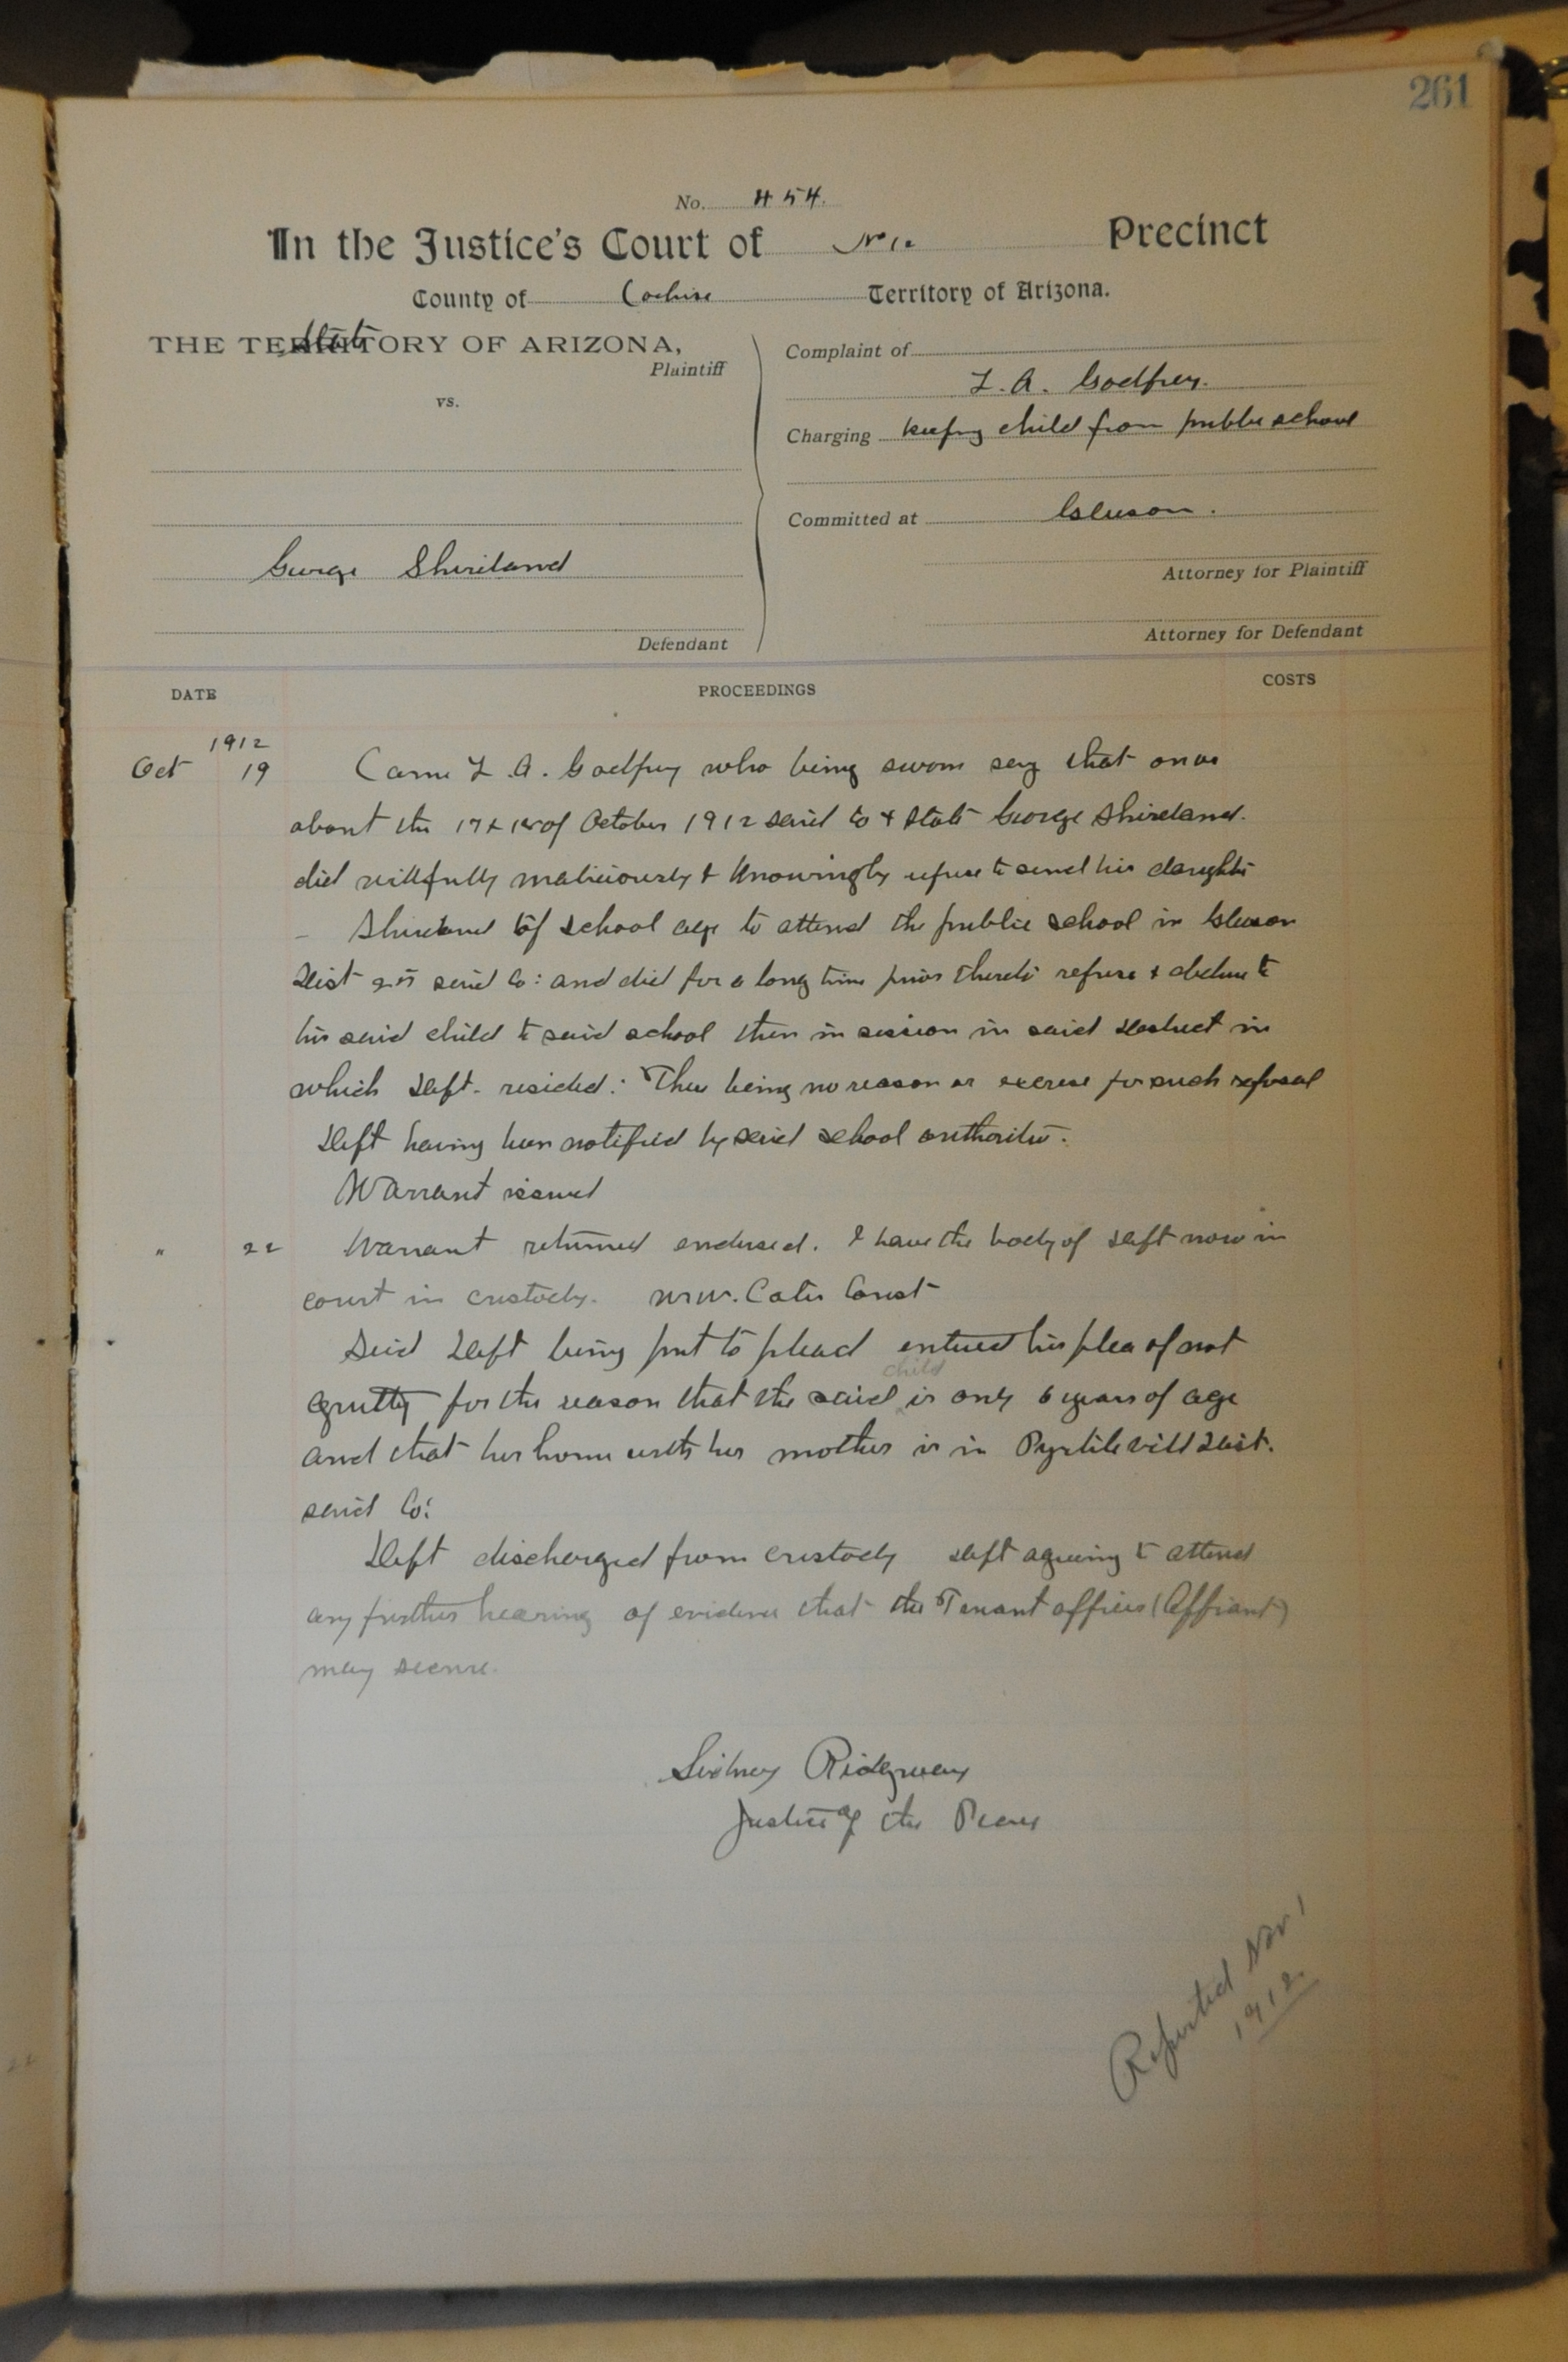 261
No. 454.
In the Justice's Court of No 1. Precinct
County of Cochise Territory of Arizona.
THE TERRITORY OF ARIZONA,
State
Plaintiff
vs.
George Shireland
Defendant
Complaint of
L. A. Godfrey.
Charging keeping child from public school
Committed at Gleeson.
Attorney for Plaintiff
Attorney for Defendant
DATE PROCEEDINGS COSTS
1912
Oct 19 Came L. A. Godfrey who being sworn say that on or
about the 17 of October 1912 said Co & State George Shireland.
did willfully maliciously & knowingly refuse to send his daughter
– Shireland of school age to attend the public school in Gleeson
Dist said Co: and did for a long time prior thereto refuse & decline to
his said child to said school then in session in said District in
which Deft. resided: There being no reason or excuse for such refusal
Deft having been notified by said school authorities.
Warrant issued
" 22 Warrant returned endorsed. I have the body of Deft now in
court in custody. Cates Const
Said Deft being put to plead entered his plea of not
child
guilty for the reason that the said is only 6 years of age
and that her home with her mother is in Pyrtlevill Dist.
said Co:
Deft discharged from custody Deft agreeing to attend
any further hearing of evidence that the Truant officer (Affiant)
may secure.
Sidney Ridgway
Justice of the Peace
Reported Nov. 1
1912.